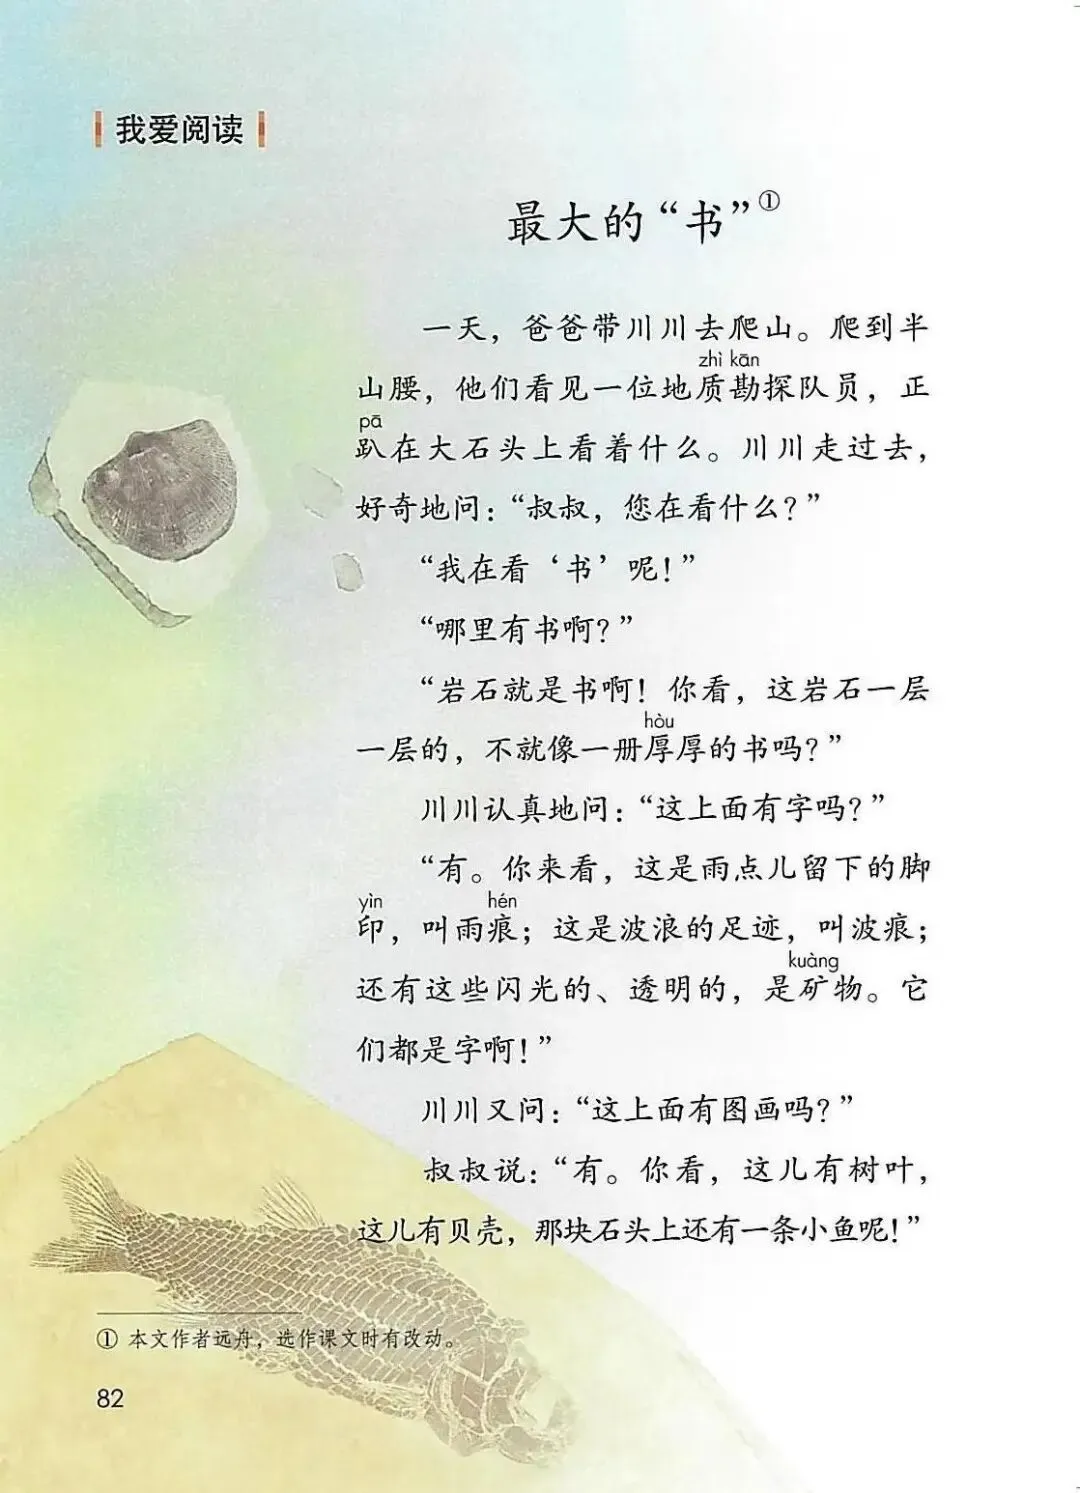 我爱阅读
最大的“书”①
一天，爸爸带川川去爬山。爬到半
zhì kān
山腰，他们看见一位地质勘探队员，正
pā
趴在大石头上看着什么。川川走过去，
好奇地问：“叔叔，您在看什么？”
“我在看‘书’呢！”
“哪里有书啊？”
“岩石就是书啊！你看，这岩石一层
hòu
一层的，不就像一册厚厚的书吗？”
川川认真地问：“这上面有字吗？”
“有。你来看，这是雨点儿留下的脚
yìn hén
印，叫雨痕；这是波浪的足迹，叫波痕；
kuàng
还有这些闪光的、透明的，是矿物。它
们都是字啊！”
川川又问：“这上面有图画吗？”
叔叔说：“有。你看，这儿有树叶，
这儿有贝壳，那块石头上还有一条小鱼呢！”
① 本文作者远舟，选作课文时有改动。
82